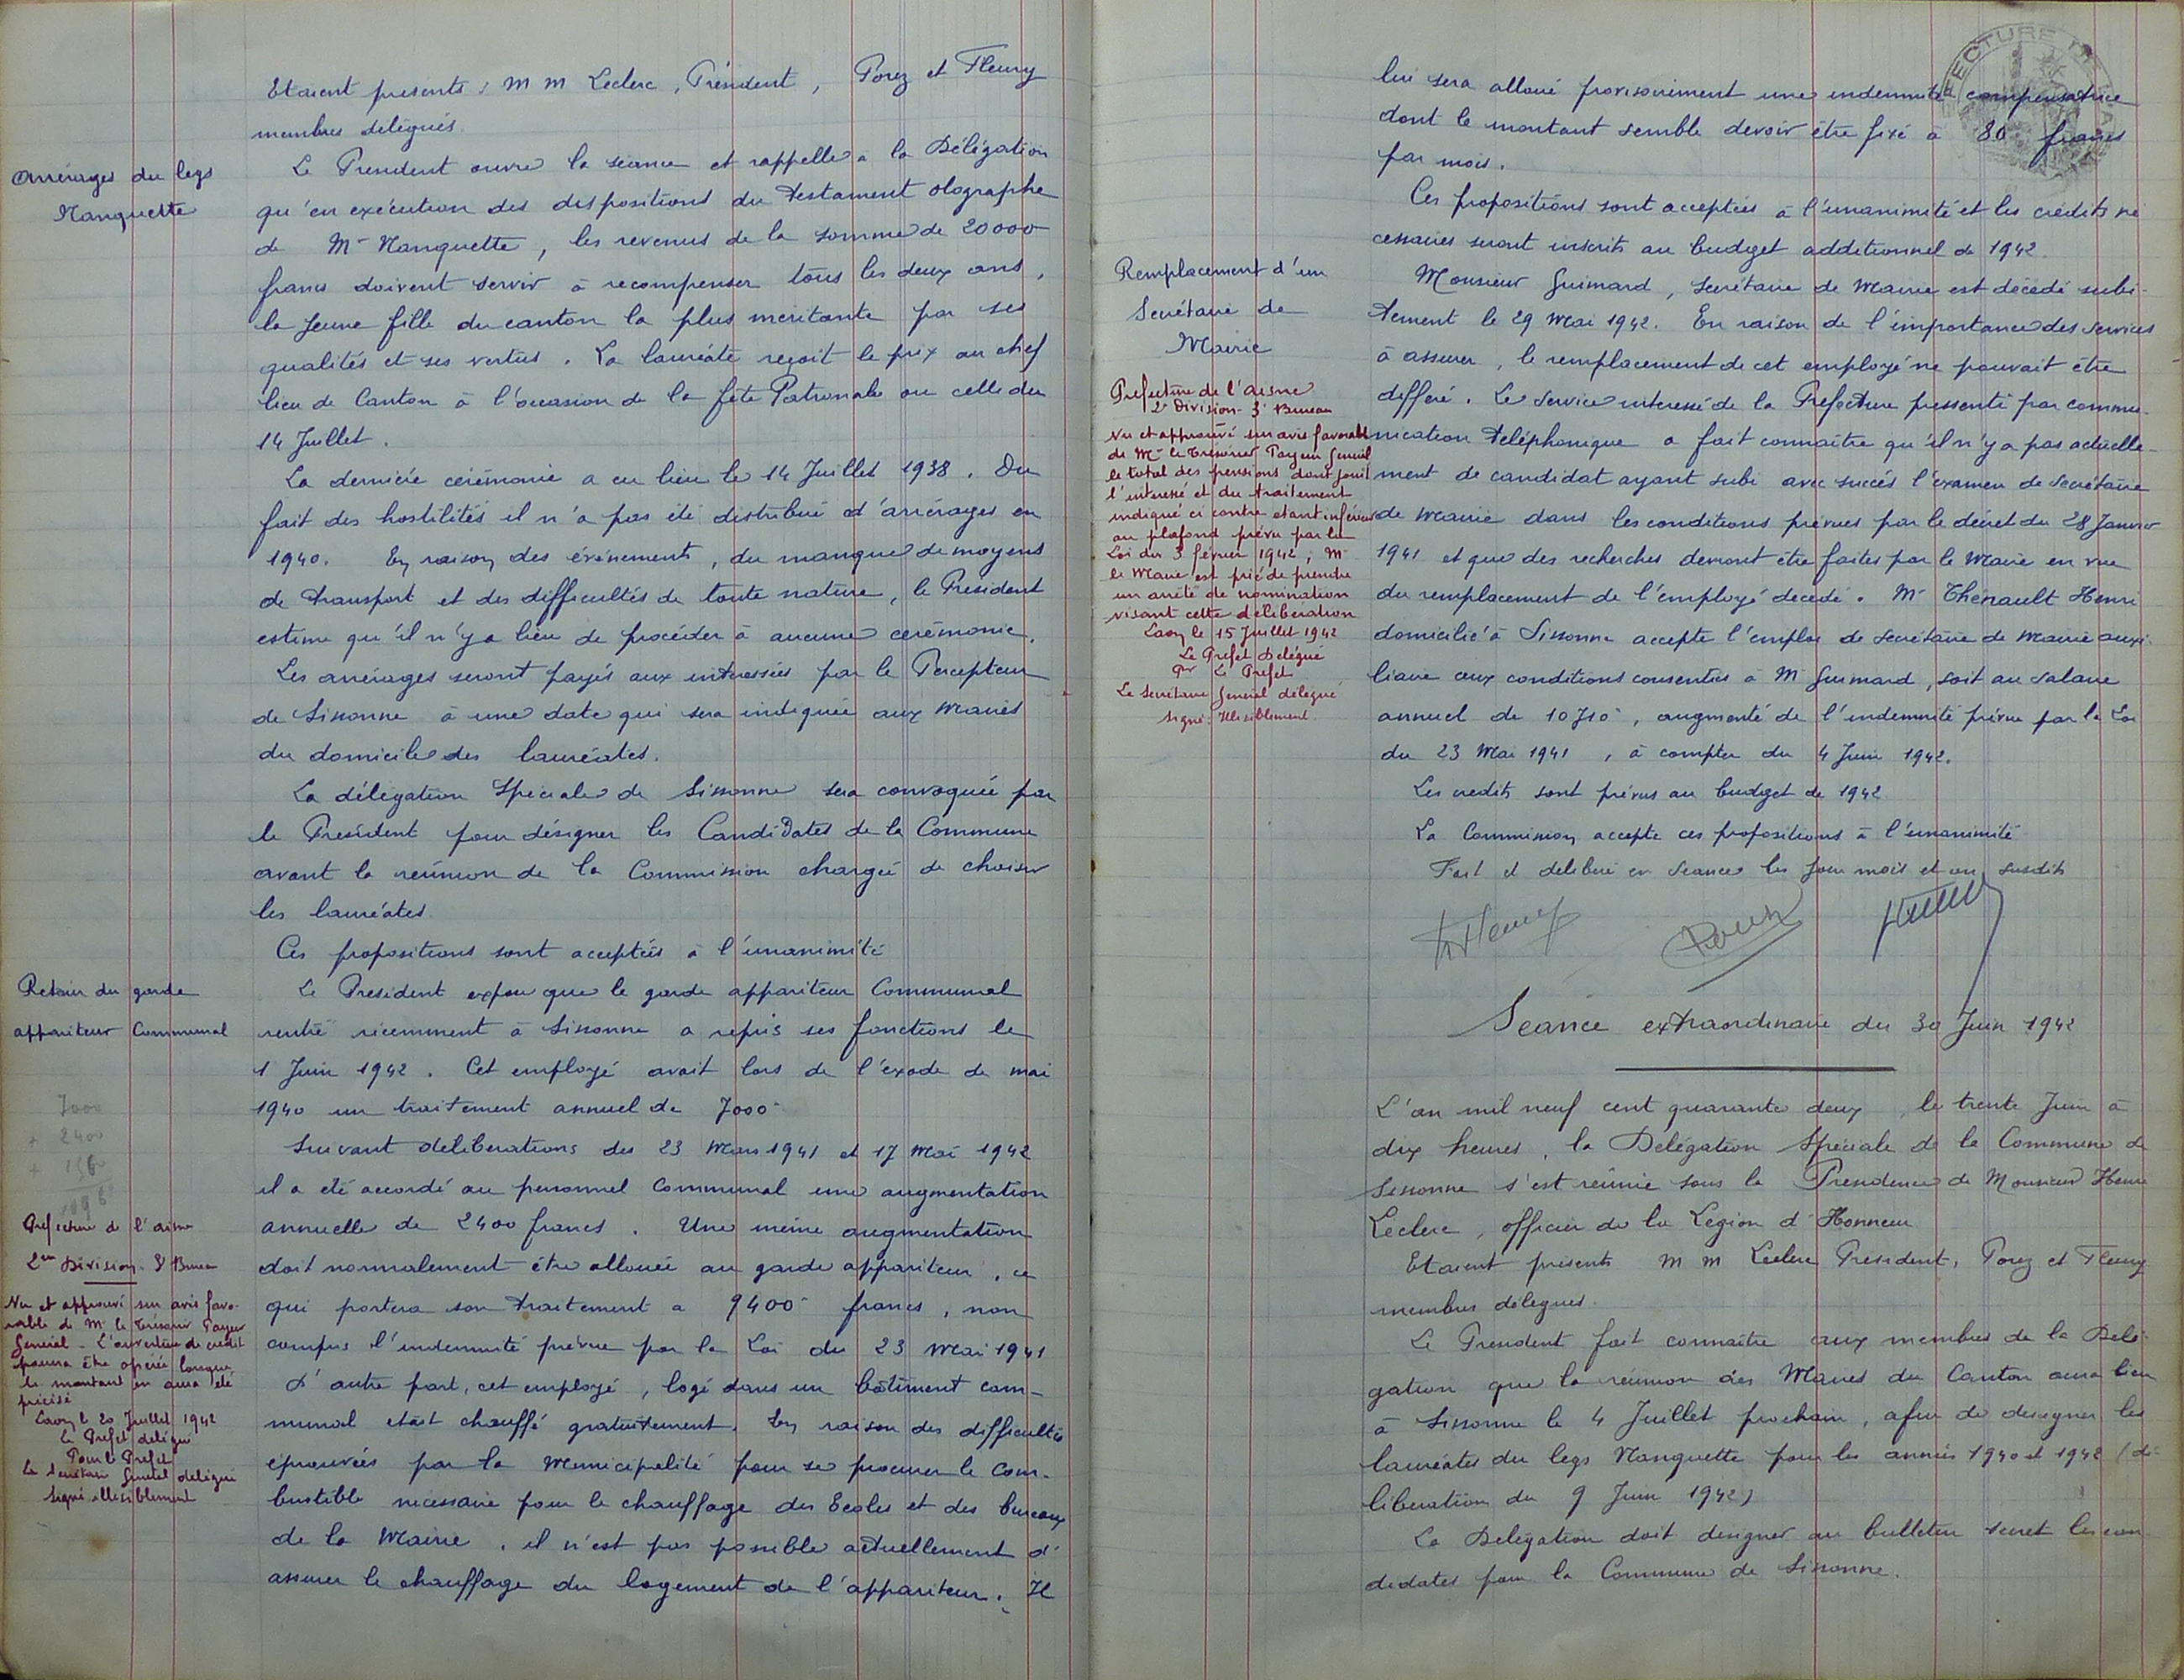 Etaient présents : M M Leclerc, Président, Porez et Fleury
membres délégués.
Arrérages du legs
Nanquette
Le President ouvre la séance et rappelle à la Délégation
qu'en exécution des dispositions du testament olographe
de Mr Nanquette, les revenus de la somme de 20000
francs doivent servir à recompenser tous les deux ans,
la jeune fille du canton la plus meritante par ses
qualités et ses vertus. La lauréate reçoit le prix au chef
lieu de Canton à l'occasion de la fête Patronale ou celle du
14 Juillet.
La dernière cérémonie a eu lieu le 14 Juillet 1938. Du
fait des hostilités il n'a pas été distribué d'arrérages en
1940. En raison des événements, du manque de moyens
de transport et des difficultés de toute nature, le Président
estime qu'il n'y a lieu de procéder à aucune cérémonie.
Les arrérages seront payés aux intéressées par le Percepteur
de Sissonne à une date qui sera indiquée aux Maires
du domicile des lauréates.
La délégation Spéciale de Sissonne sera convoquée par
le Président pour désigner les Candidates de la Commune
avant la réunion de la Commission chargée de choisir
les lauréates.
Ces propositions sont acceptées à l'unanimité
Retour du garde
appariteur Communal
Le President expose que le garde appariteur Communal
rentré récemment à Sissonne a repris ses fonctions le
1 Juin 1942. Cet employé avait lors de l'exode de mai
1940 un traitement annuel de 7000
Suivant délibérations des 23 Mars 1941 et 17 Mai 1942
il a été accordé au personnel Communal une augmentation
annuelle de 2400 francs. Une meine augmentation
doit normalement être allouée au garde appariteur, ce
qui portera son traitement a 9400 francs, non
compris l'indemnité prévue par la Loi du 23 Mai 1941
D'autre part, cet employé, logé dans un bâtiment com-
munal etait chauffé gratuitement. En raison des difficultés
éprouvées par la Municipalité pour se procurer le com-
bustible nécessaire pour le chauffage des Ecoles et des bureaux
de la Mairie, il n'est pas possible actuellement d'
assurer le chauffage du logement de l'appariteur. Il
7000
+ 2400
+
Prefecture de l'aisne
2em Division 3e Bureau
Vu et approuvé sur avis favo-
rable de Mr le Trésorier Payeur
Général - L'ouverture de crédit
pourra être opérée lorsque
le montant en aura été
précisé
Laon le 20 Juillet 1942
le Préfet délégué
Pour le Préfet
Le Secrétaire Général délégué
Signé illisiblement
lui sera alloué provisoirement une indemnité compensatrice
dont le montant semble devoir être fixé à 80 francs
par mois.
Ces propositions sont acceptées à l'unanimité et les crédits né
cessaires seront inscrits au budget additionnel de 1942.
Remplacement d'un
Secrétaire de
Mairie
Monsieur Guimard, secrétaire de Mairie est décédé subi-
tement le 29 Mai 1942. En raison de l'importance des services
à assurer, le remplacement de cet employé ne pouvait être
différé. Le Service intéressé de la Préfecture pressenti par commu-
nication téléphonique a fait connaître qu'il n'y a pas actuelle-
ment de candidat ayant subi avec succès l'examen de Secrétaire
de Mairie dans les conditions prévues par le décret du 28 Janvier
1941 et que des recherches devront être faites par le Maire en vue
du remplacement de l'employé décédé. Mr Thenault Henri
domicilié à Sissonne accepte l'emploi de secrétaire de Mairie auxi-
liaire aux conditions consenties à Mr Guimard, soit au salaire
annuel de 10710, augmenté de l'indemnité prévue par la Loi
du 23 Mai 1941, à compter du 4 Juin 1942.
Les crédits sont prévus au budget de 1942
La Commission accepte ces propositions à l'unanimité
Fait et délibéré en séance les jour mois et an susdits
Prefecture de l'aisne
2e Division - 3e Bureau
Vu et approuvé sur avis favorable
de Mr le Trésorier Payeur Général
le total des pensions dont jouit
l'intéressé et du traitement
indiqué ci contre étant inférieur
au plafond prévu par la
Loi du 3 février 1942, Mr
le Maire est prié de prendre
un arrêté de nomination
visant cette délibération
Laon le 15 Juillet 1942
Le Préfet Délégué
Pr Le Préfet
Le Secrétaire Général délégué
Signé : Illisiblement.
Séance extraordinaire du 30 Juin 1942
L'an mil neuf cent quarante deux, le trente Juin à
dix heures, la Délégation Spéciale de la Commune de
Sissonne s'est réunie sous la Présidence de Monsieur Henri
Leclerc, officier de la Légion d'Honneur
Etaient présents M M Leclerc Président, Porez et Fleury
membres délégués.
Le Président fait connaître aux membres de la Délé-
gation que la réunion des Maires du Canton aura lieu
à Sissonne le 4 Juillet prochain, afin de désigner les
lauréates du legs Nanquette pour les années 1940 et 1942 (dé-
libération du 9 Juin 1942)
La Délégation doit désigner au bulletin secret les can-
didates pour la Commune de Sissonne.